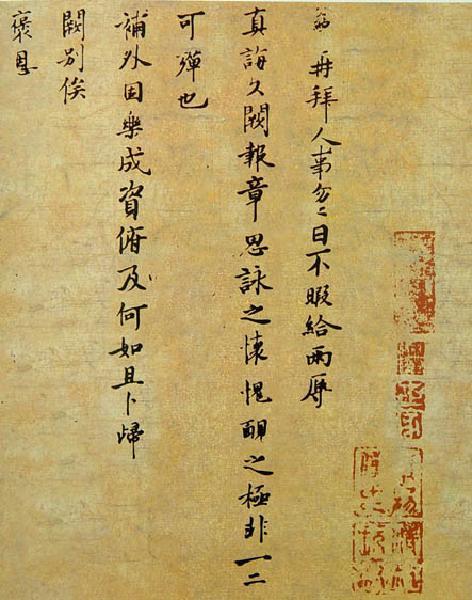 再拜人事分々日不暇給兩辱
真誨久闕報章思詠之懷愧靦之極非一二
可殫也
補外因樂成資脩及何如且卜歸
闕別俟
褒恩